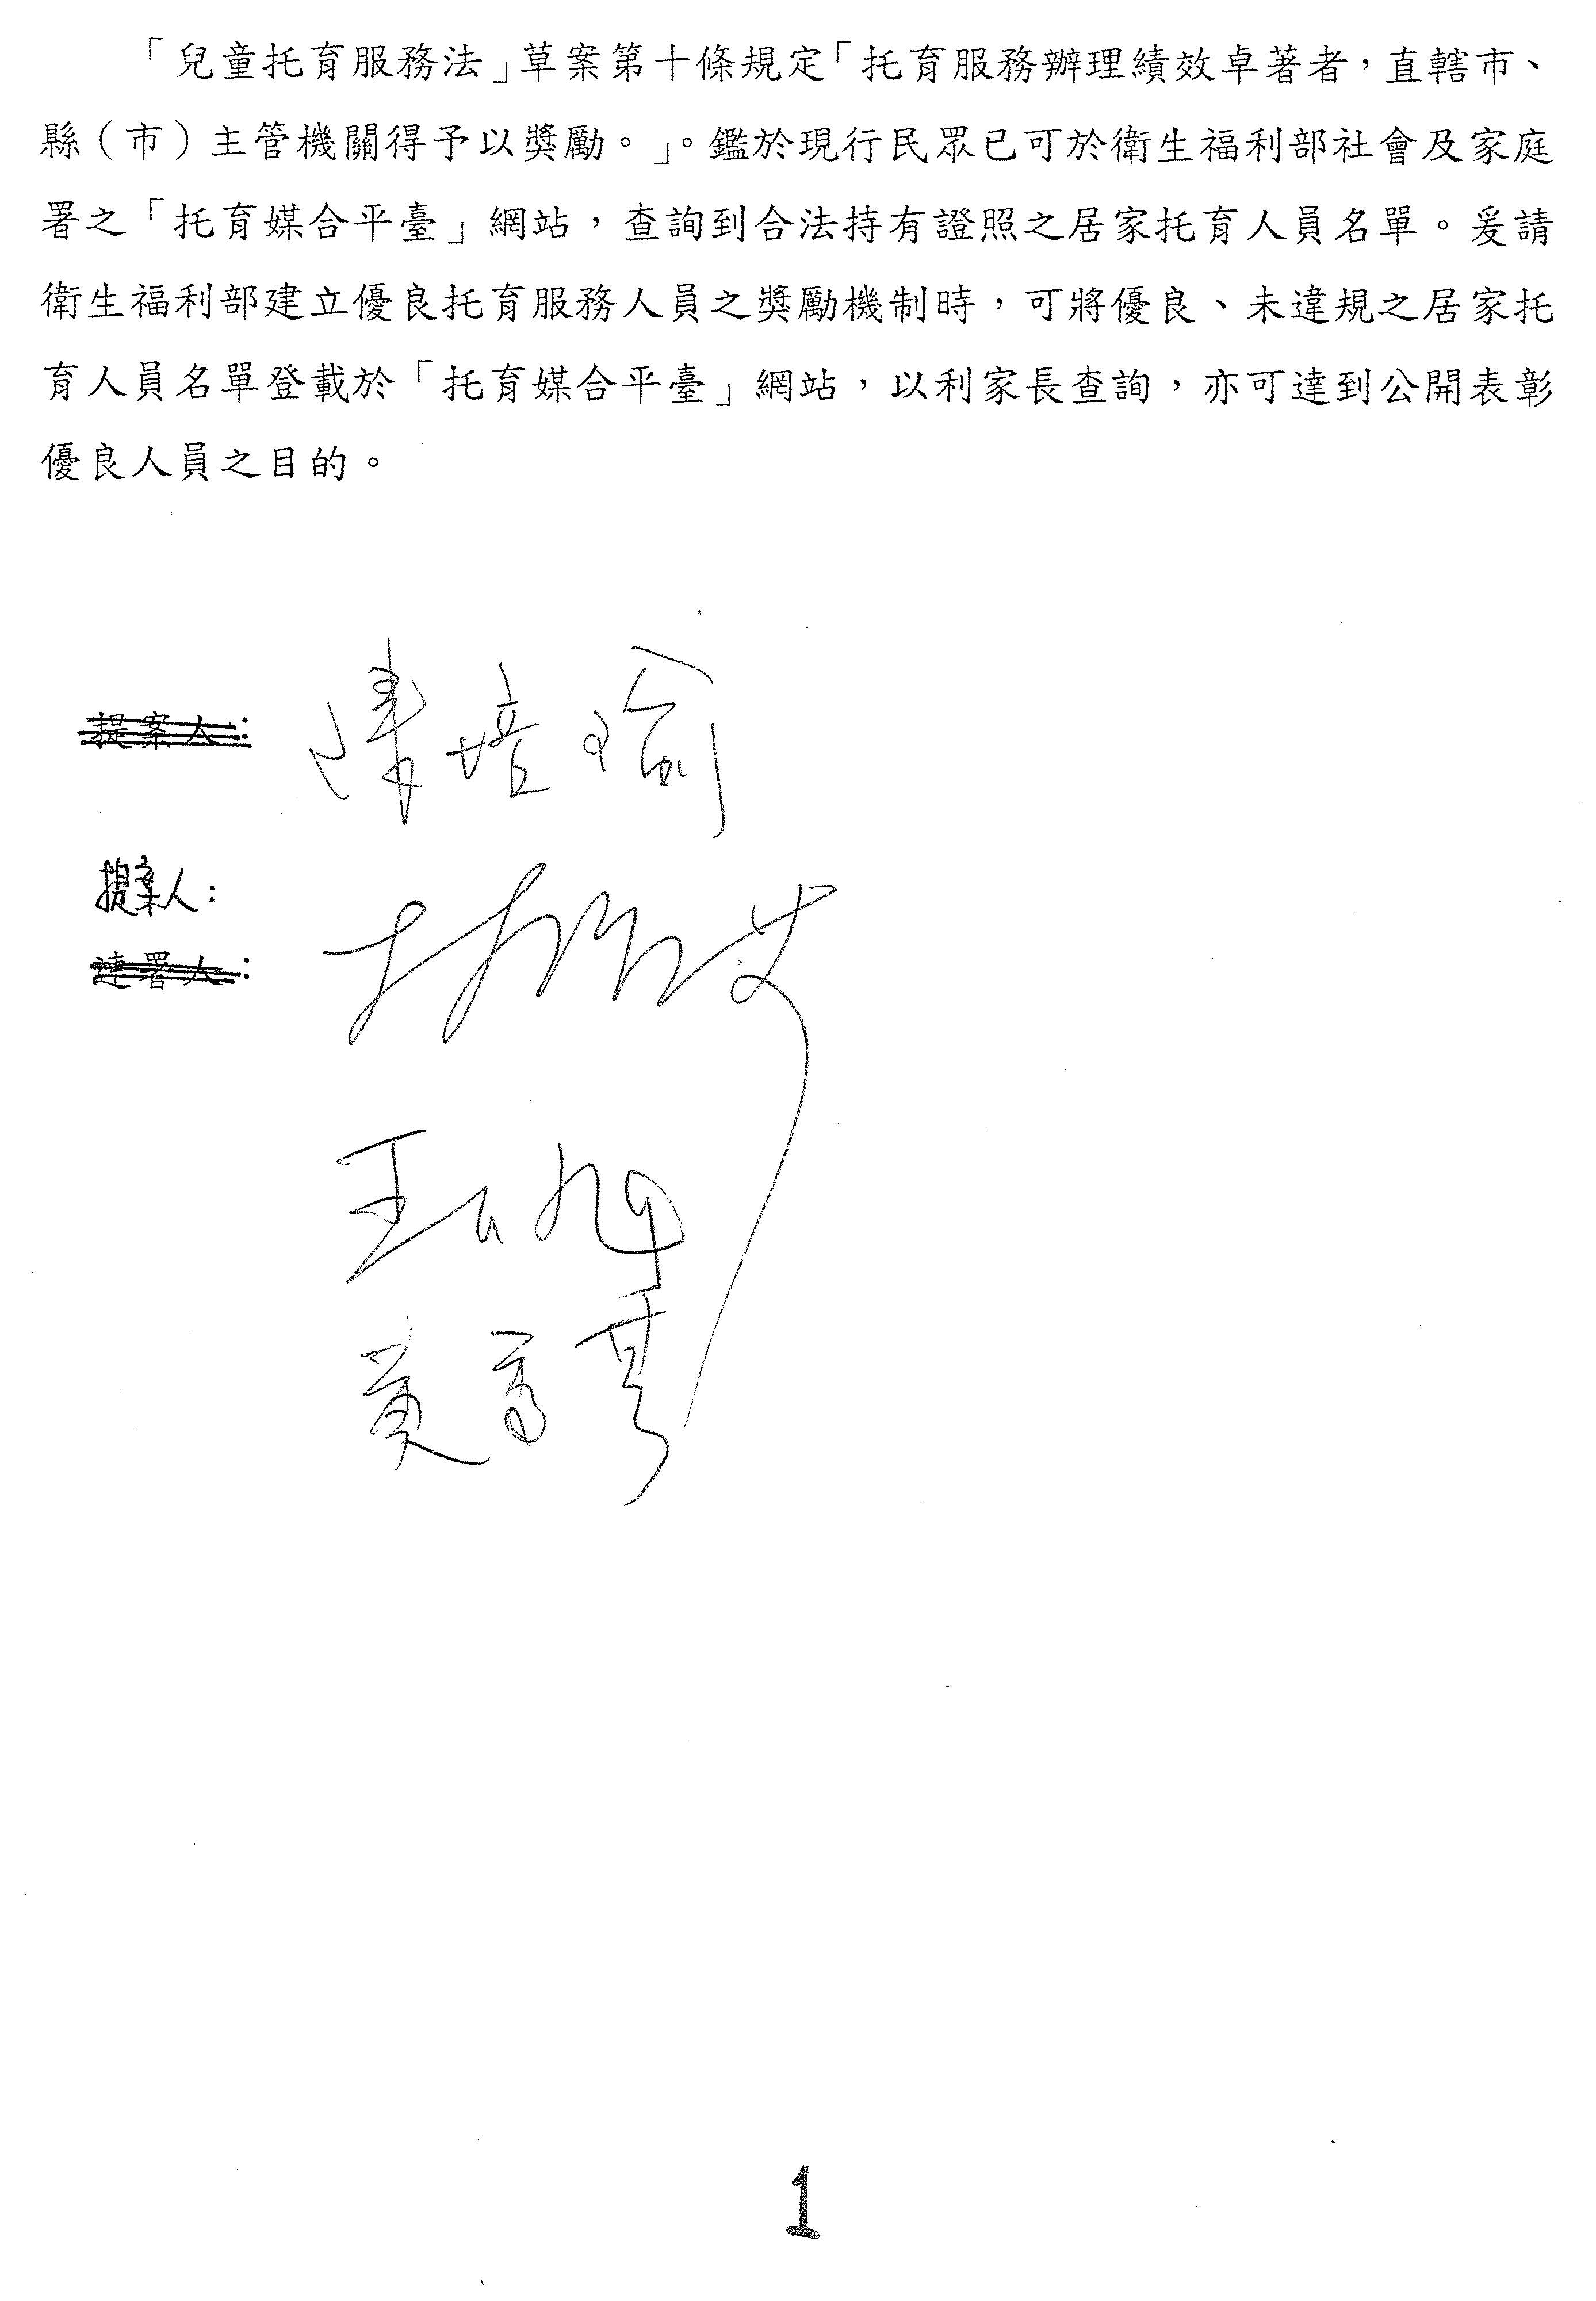 「兒童托育服務法」草案第十條規定「托育服務辦理績效卓著者，直轄市、
縣（市）主管機關得予以獎勵。」。鑑於現行民眾已可於衛生福利部社會及家庭
署之「托育媒合平臺」網站，查詢到合法持有證照之居家托育人員名單。爰請
衛生福利部建立優良托育服務人員之獎勵機制時，可將優良、未違規之居家托
育人員名單登載於「托育媒合平臺」網站，以利家長查詢，亦可達到公開表彰
優良人員之目的。
提案人： 陳培瑜
提案人：
連署人：
王
黃秀芳
1